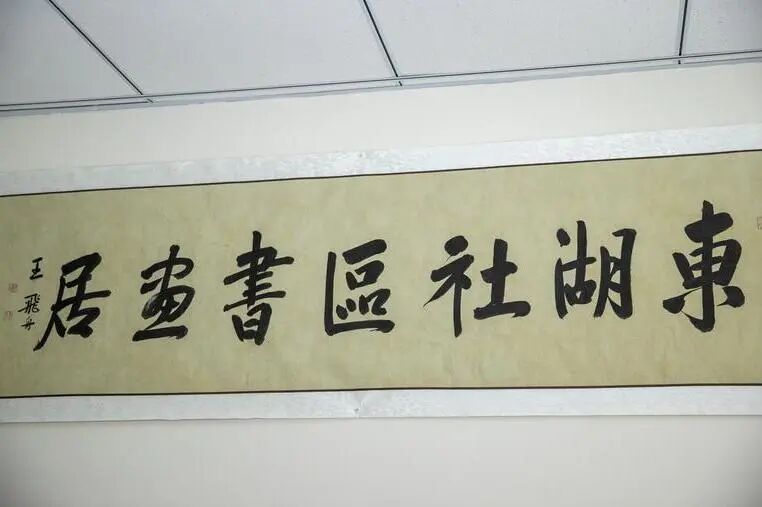 東湖社區書畫居
王飛舟